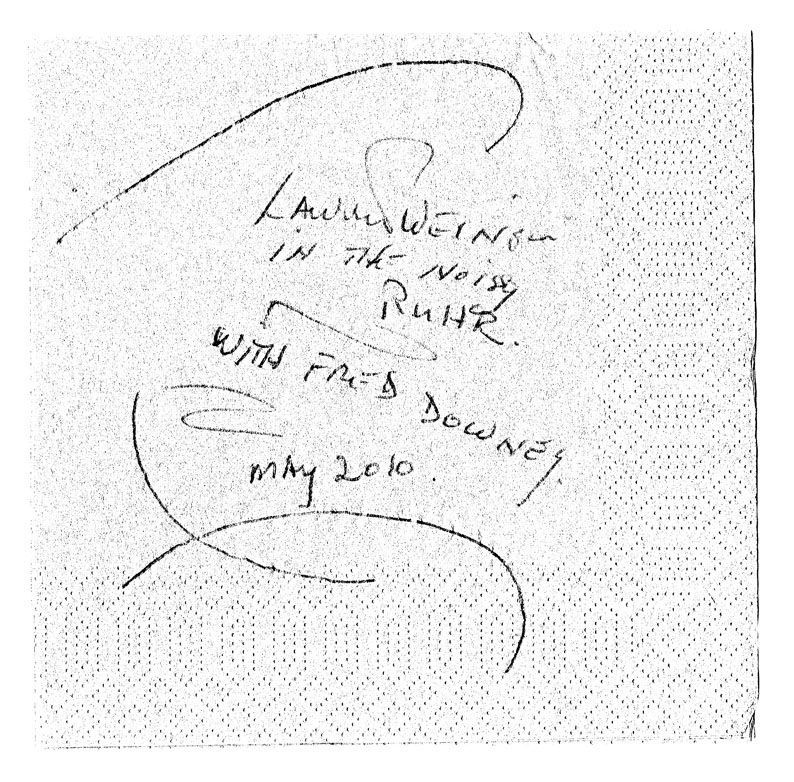 WEINER
IN THE NOISY
RUHR.
WITH FRED DOWNEY.
MAY 2010.